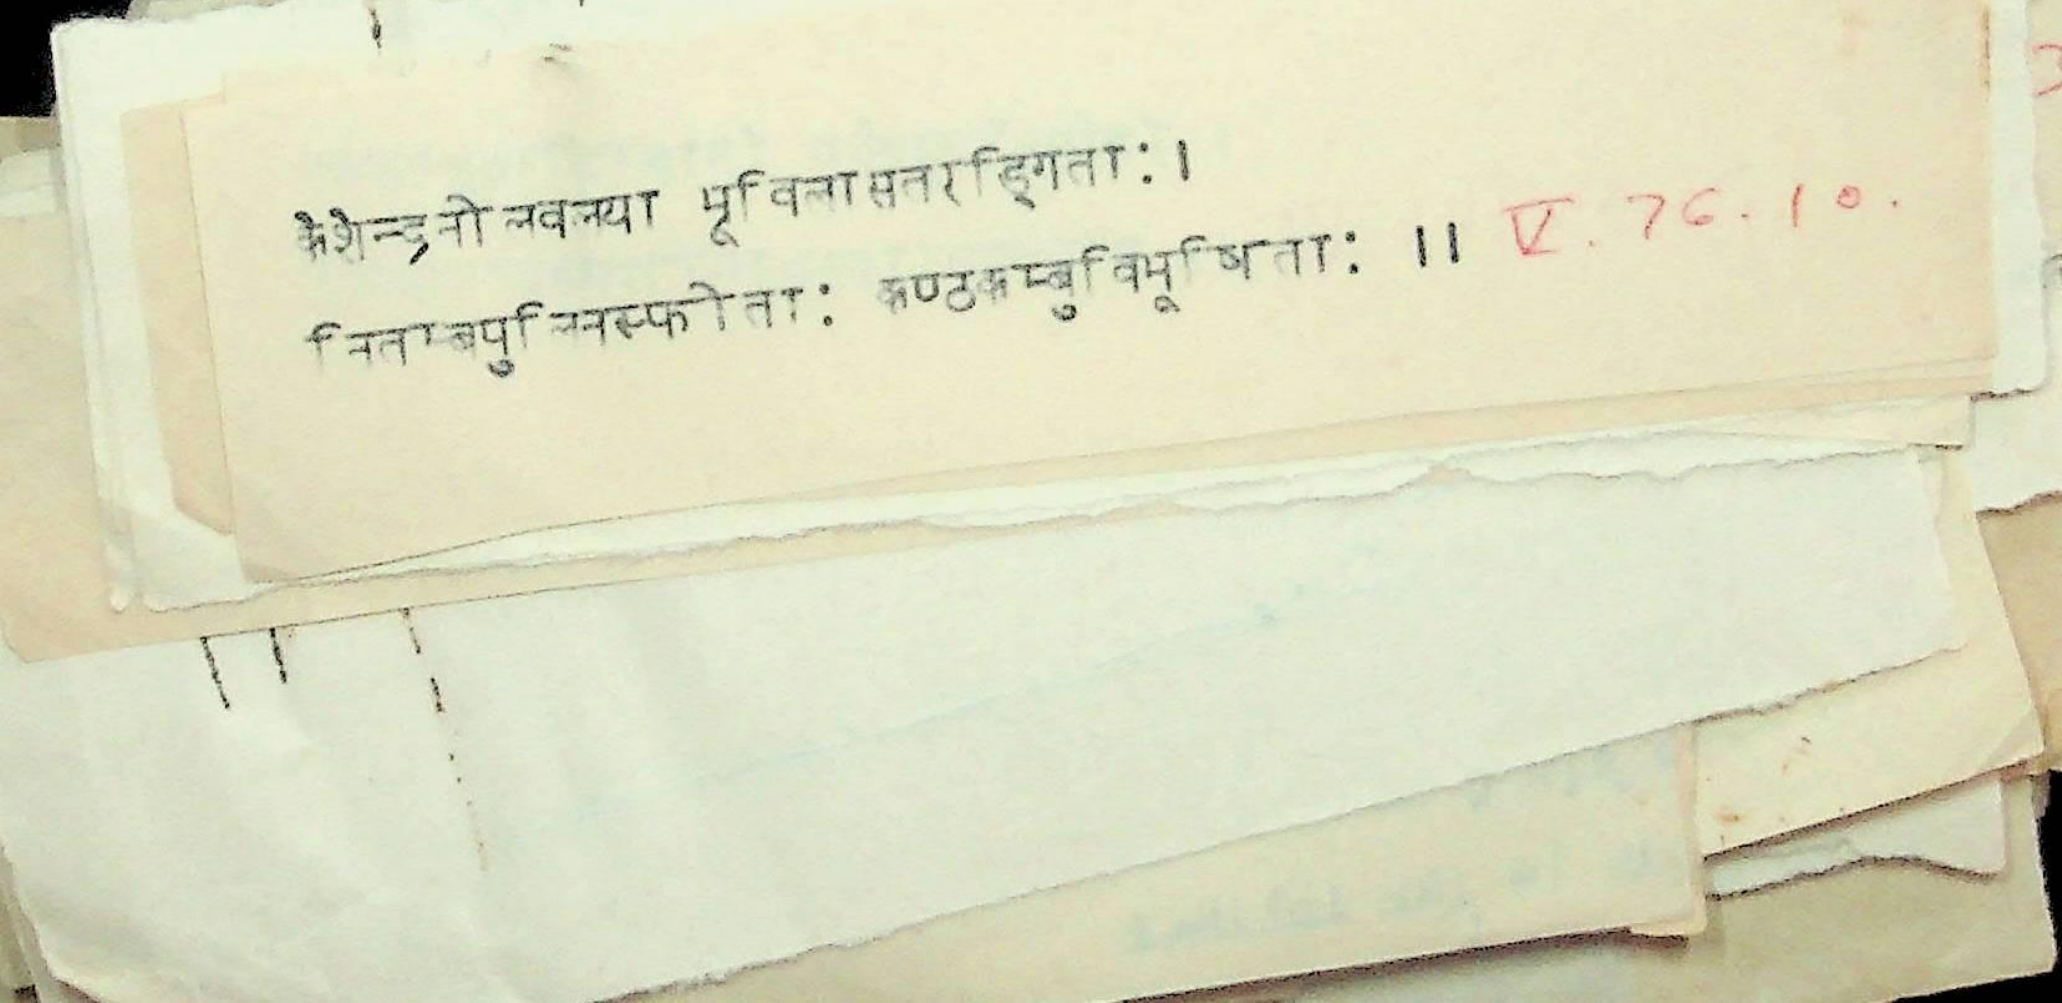 केशेन्द्रनीलवलया भ्रूविलासतरङ्गिताः।
नितम्बपुलिनस्फीताः कण्ठकम्बुविभूषिताः ॥ V. 76. 10.